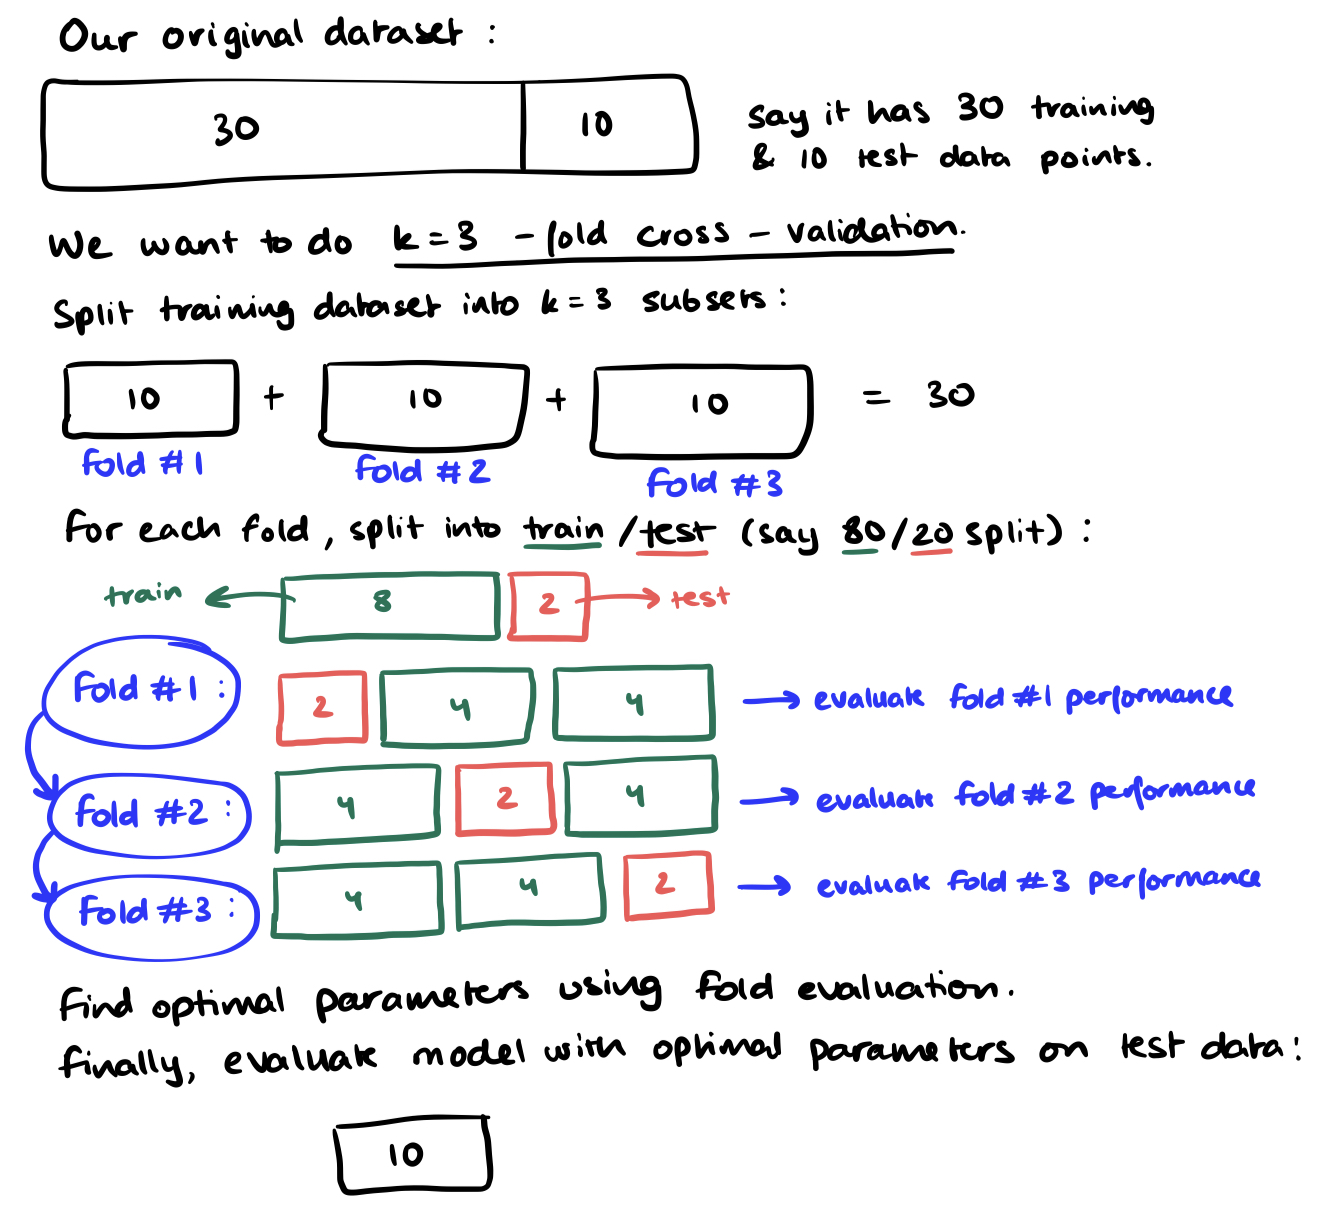 Our original dataset :
30 10
say it has 30 training
& 10 test data points.
We want to do k = 3 - fold cross - validation.
Split training dataset into k = 3 subsets :
10 + 10 + 10 = 30
Fold #1 Fold #2 Fold #3
For each fold, split into train / test (say 80/20 split) :
train 8 2 test
Fold #1 : 2 4 4 evaluate fold #1 performance
Fold #2 : 4 2 4 evaluate fold #2 performance
Fold #3 : 4 4 2 evaluate fold #3 performance
Find optimal parameters using fold evaluation.
Finally, evaluate model with optimal parameters on test data :
10